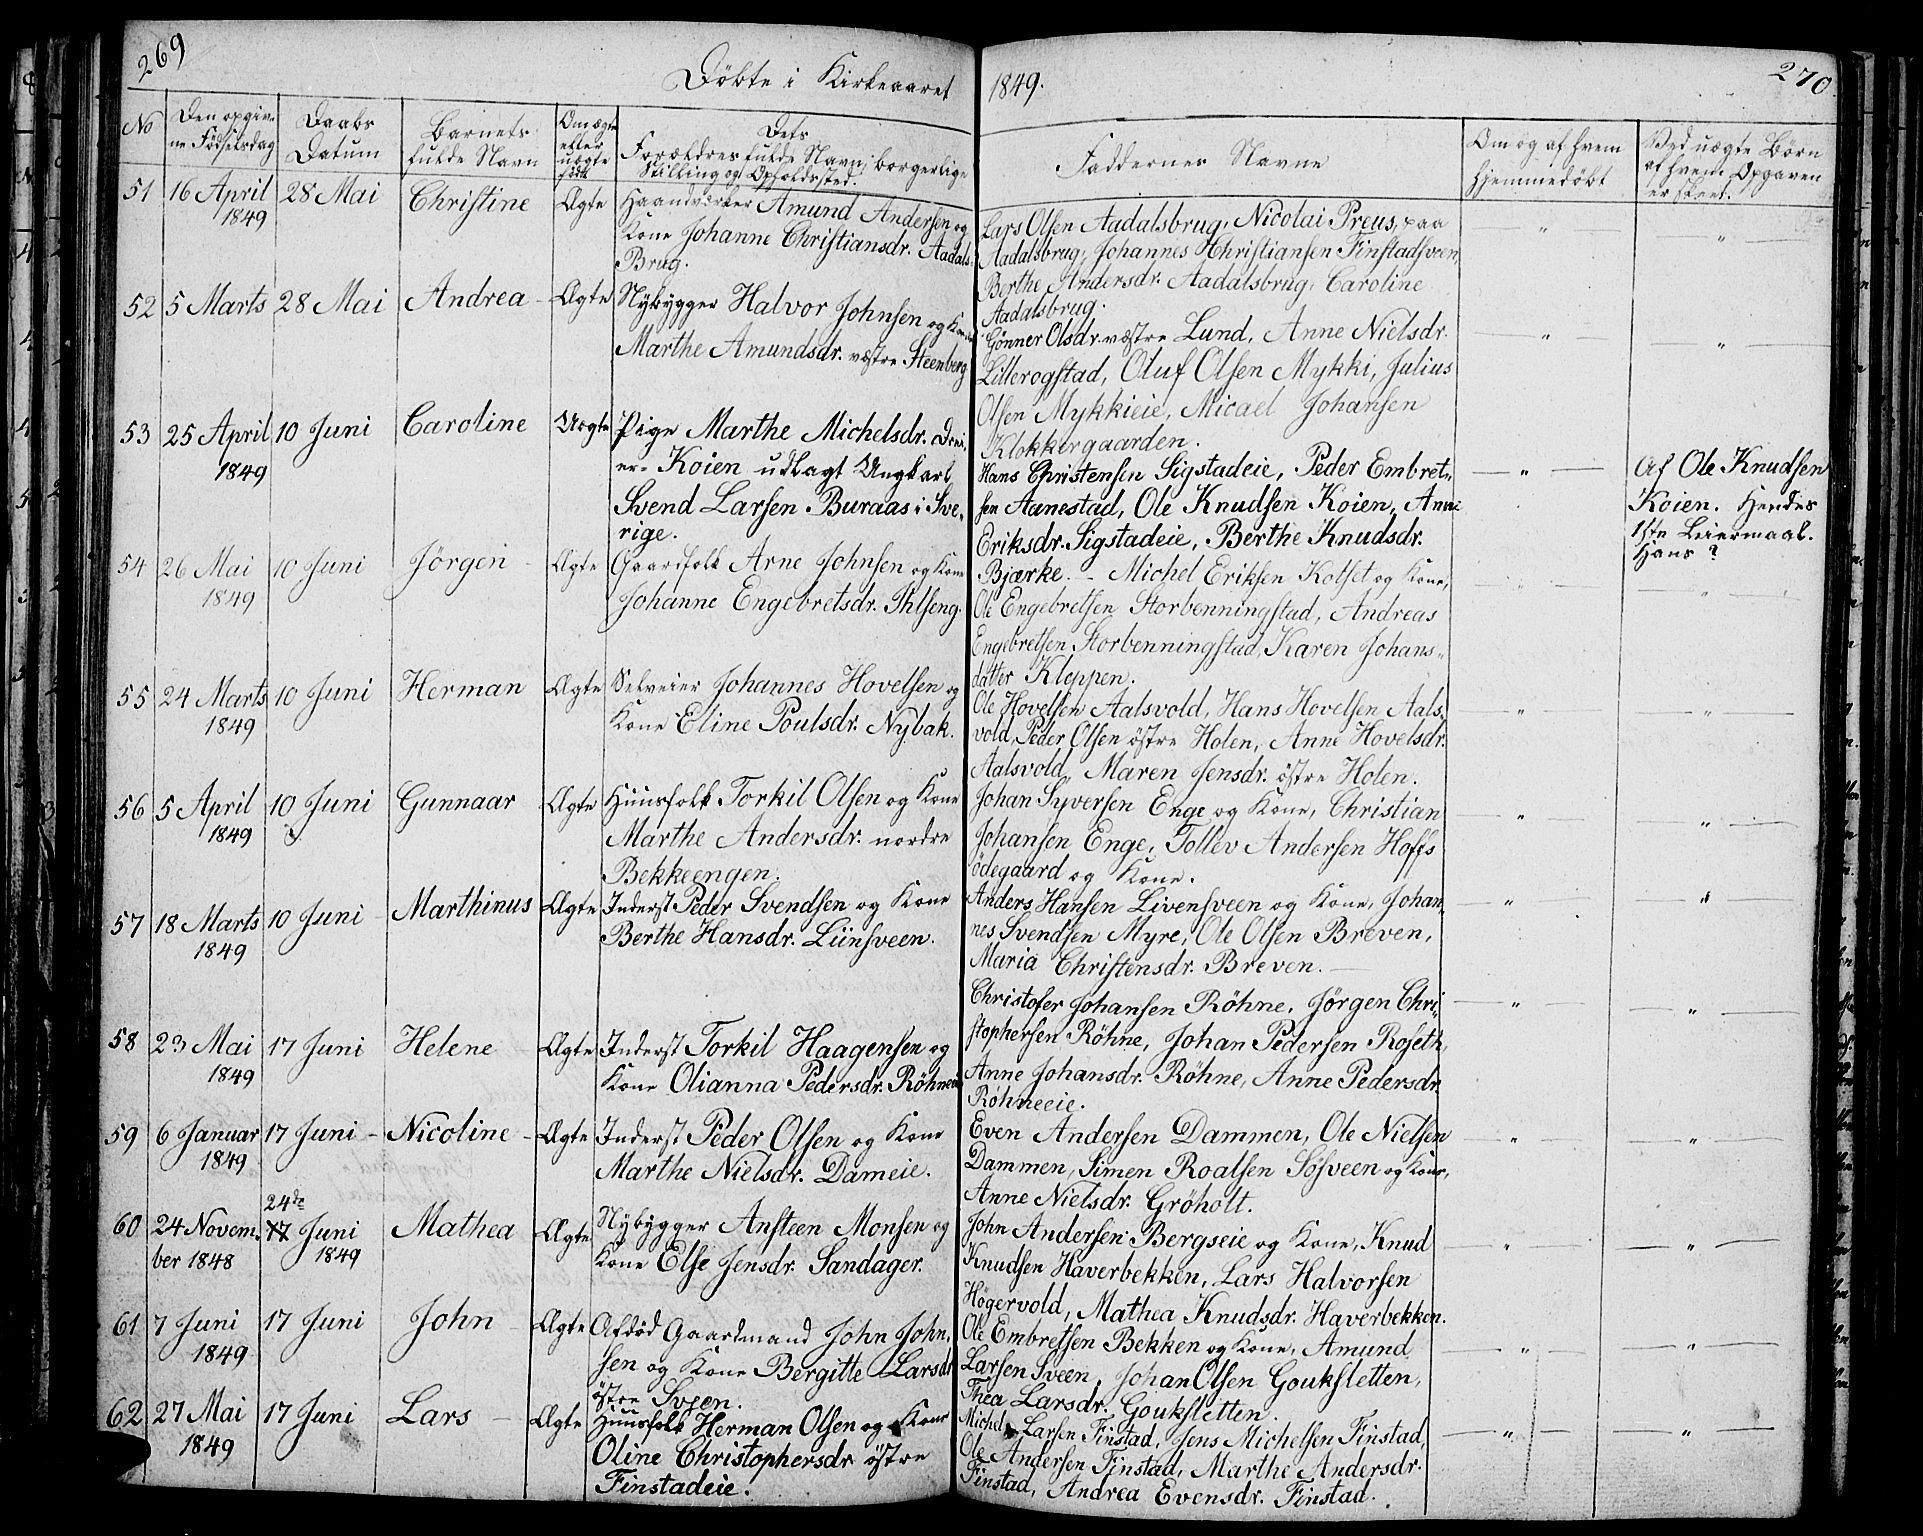 269
Döbte i Kirkeaaret
1849.
270
No
Den opgiv-
ne Födselsdag
Daabs
Datum
Barnets
fulde Navn
Om ægte
eller
uægte
født
Dets
Forældres fulde Navn, borgerlige
Stilling og Opholdsted.
Faddernes Navne
Om og af hvem
hjemmedöbt
Ved uægte Börn
af hvem Opgaven
er skeet.
51 16 April 28 Mai Christine Ægte Haandværker Amund Andersen og
1849
Kone Johanne Christiansdr. Aadals-
Brug.
Lars Olsen Aadalsbrug, Nicolai Preus, paa
Aadalsbrug, Johannes Christiansen Finstadsveen,
Berthe Andersdr. Aadalsbrug, Caroline
Aadalsbrug.
52 5 Marts 28 Mai Andrea Ægte Nybygger Halvor Johnsen og Kone
Marthe Amundsdr. vestre Steenberg
Gönner Olsdr. vestre Lund, Anne Nielsdr.
Lillerogstad, Oluf Olsen Mykki, Julius
Olsen Mykkieie, Micael Johansen
Klokkergaarden.
53 25 April 10 Juni Caroline Uægte Pige Marthe Michelsdr.
1849
Koien udlagt Ungkarl
Svend Larsen Buraas i Sve-
rige.
Hans Christensen Sigstadeie, Peder Embret-
sen Aanestad, Ole Knudsen Koien, Anne
Eriksdr. Sigstadeie, Berthe Knudsdr.
Bjærke.
Af Ole Knudsen
Koien. Hendes
1ste Leiermaal.
Hans ?
54 26 Mai 10 Juni Jörgen Ægte Gaardfolk Arne Johnsen og Kone
1849
Johanne Engebretsdr. Ihlseng.
Michel Eriksen Kolset og Kone,
Ole Engebretsen Storbenningstad, Andreas
Engebretsen Storbenningstad, Karen Johans-
datter Kloppen.
55 24 Marts 10 Juni Herman Ægte Selveier Johannes Hovelsen og
1849
Kone Eline Poulsdr. Nybak.
Ole Hovelsen Aalsvold, Hans Hovelsen Aals-
vold, Peder Olsen östre Holen, Anne Hovelsdr.
Aalsvold, Maren Jensdr. östre Holen.
56 5 April 10 Juni Gunnaar Ægte Huusfolk Torkil Olsen og Kone
1849
Marthe Andersdr. nordre
Bekkeengen.
Johan Syversen Enge og Kone, Christian
Johansen Enge, Tollev Andersen Hoffs
ödegaard og Kone.
57 18 Marts 10 Juni Marthinus Ægte Inderst Peder Svendsen og Kone
1849
Berthe Hansdr. Liinsveen.
Anders Hansen Livensveen og Kone, Johan-
nes Svendsen Myre, Ole Olsen Breven,
Maria Christensdr. Breven.
58 23 Mai 17 Juni Helene Ægte Inderst Torkil Haagensen og
1849
Kone Olianna Pedersdr. Röhneeie
Christofer Johansen Röhne, Jörgen Chri-
stophersen Röhne, Johan Pedersen Roseth,
Anne Johansdr. Röhne, Anne Pedersdr.
Röhneeie.
59 6 Januar 17 Juni Nicoline Ægte Inderst Peder Olsen og Kone
1849
Marthe Nielsdr. Dameie.
Even Andersen Dammen, Ole Nielsen
Dammen, Simen Roalsen Sösveen og Kone,
Anne Nielsdr. Gröholt.
60 24 Novem- 24de 17 Juni Mathea Ægte Nybygger Ansteen Monsen og
ber 1848 1849
Kone Else Jensdr. Sandager.
John Andersen Bergseie og Kone, Knud
Knudsen Haverbekken, Lars Halvorsen
Högervold, Mathea Knudsdr. Haverbekken.
61 7 Juni 17 Juni John Ægte Afdöd Gaardmand John John-
1849
sen og Kone Bergitte Larsdr
östre Sveen.
Ole Embretsen Bekken og Kone, Amund
Larsen Sveen, Johan Olsen Goukstetten,
Thea Larsdr. Goukstetten.
62 27 Mai 17 Juni Lars Ægte Huusfolk Herman Olsen og Kone
1849
Oline Christophersdr östre
Finstadeie.
Michel Larsen Finstad, Jens Michelsen Finstad,
Ole Andersen Finstad, Marthe Andersdr.
Finstad, Andrea Evensdr. Finstad.